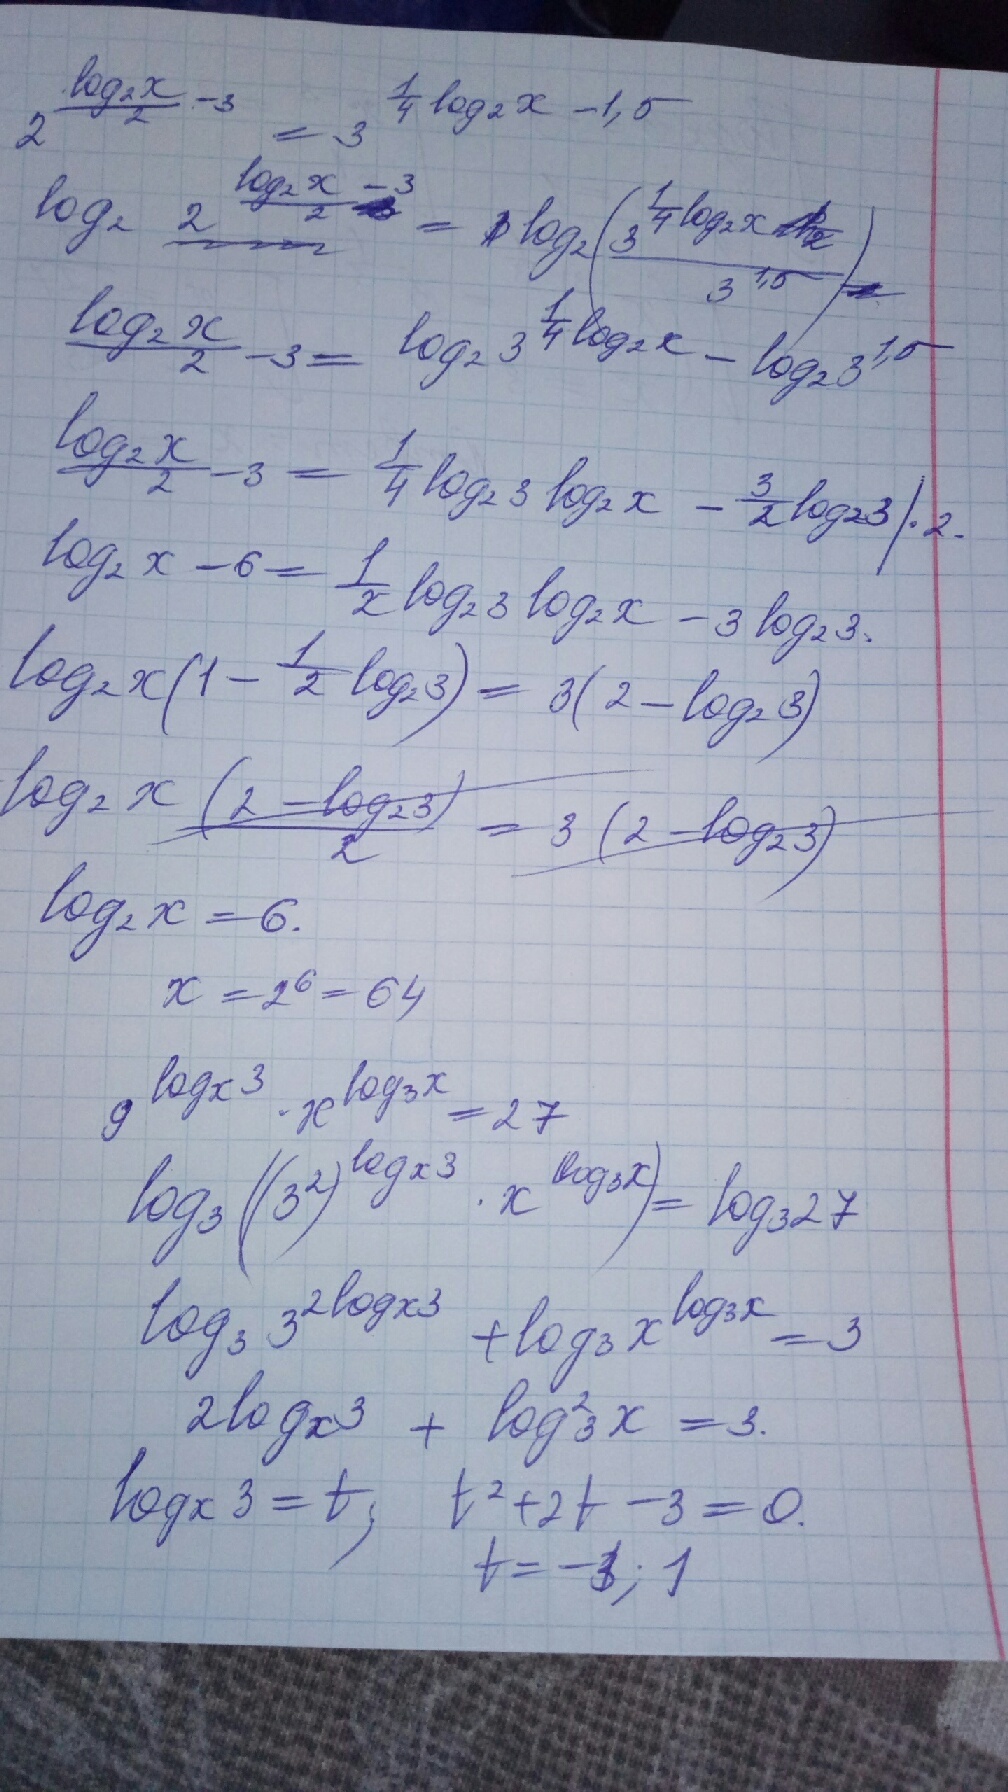 2^(log₂x/2 - 3) = 3^(1/4 log₂x - 1,5)
log₂ 2^(log₂x/2 - 3) = log₂(3^(1/4 log₂x) / 3^(1,5))
log₂x/2 - 3 = log₂3^(1/4 log₂x) - log₂3^(1,5)
log₂x/2 - 3 = 1/4 log₂3 log₂x - 3/2 log₂3 | · 2.
log₂x - 6 = 1/2 log₂3 log₂x - 3 log₂3.
log₂x(1 - 1/2 log₂3) = 3(2 - log₂3)
log₂x (2 - log₂3)/2 = 3(2 - log₂3)
log₂x = 6.
x = 2⁶ = 64
9^(logₓ3) · x^(log₃x) = 27
log₃((3²)^(logₓ3) · x^(log₃x)) = log₃27
log₃3^(2logₓ3) + log₃x^(log₃x) = 3
2logₓ3 + log₃²x = 3.
logₓ3 = t; t² + 2t - 3 = 0.
t = -3; 1